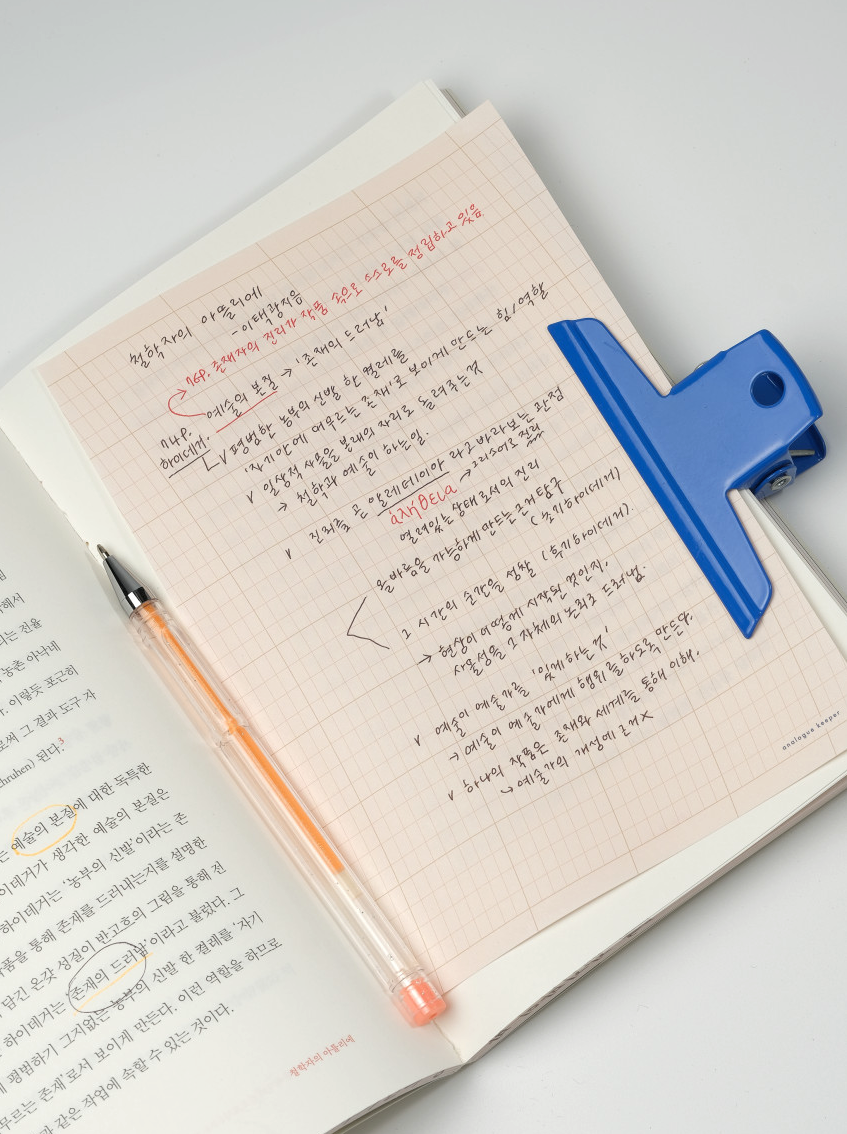 철학자의 아뜰리에
- 이택광지음
76p. 존재자의 진리가 작품 속으로 스스로를 정립하고 있음
예술의 본질 → '존재의 드러남'
74p.
하이데거.
v 평범한 농부의 신발 한 켤레를
'자기안에 머무르는 존재'로 보이게 만드는 힘/역할
v 일상적 사물을 본래의 자리로 돌려주는것
→ 철학과 예술이 하는일.
v 진리를 곧 알레테이아 라고 바라보는 관점
ἀλήθεια → 그리스어로 진리
열려있는 상태로서의 진리
올바름을 가능하게 만드는 근거 탐구
(초기하이데거)
그 시간의 순간을 성찰 (후기하이데거).
→ 현상이 어떻게 시작된 것인지,
사물성을 그 자체의 논리로 드러냄.
v 예술이 예술가를 '있게 하는 것'
→ 예술이 예술가에게 행위를 하도록 만든다.
v 하나의 작품은 존재와 세계를 통해 이해.
↳ 예술가의 개성에 근거X
analogue keeper
해서
라는 전율
농촌 아낙네
. 이렇듯 포근히
로써 그 결과 도구 자
chruhen) 된다.3
는 예술의 본질에 대한 독특한
이데거가 생각한 예술의 본질은
하이데거는 '농부의 신발'이라는 존
작품을 통해 존재를 드러내는지를 설명한
담긴 온갖 성질이 반고흐의 그림을 통해 전
하이데거는 '존재의 드러남'이라고 불렀다. 그
평범하기 그지없는 농부의 신발 한 켤레를 '자기
무르는 존재'로서 보이게 만든다. 이런 역할을 하므로
과 같은 작업에 속할 수 있는 것이다.
철학자의 아틀리에